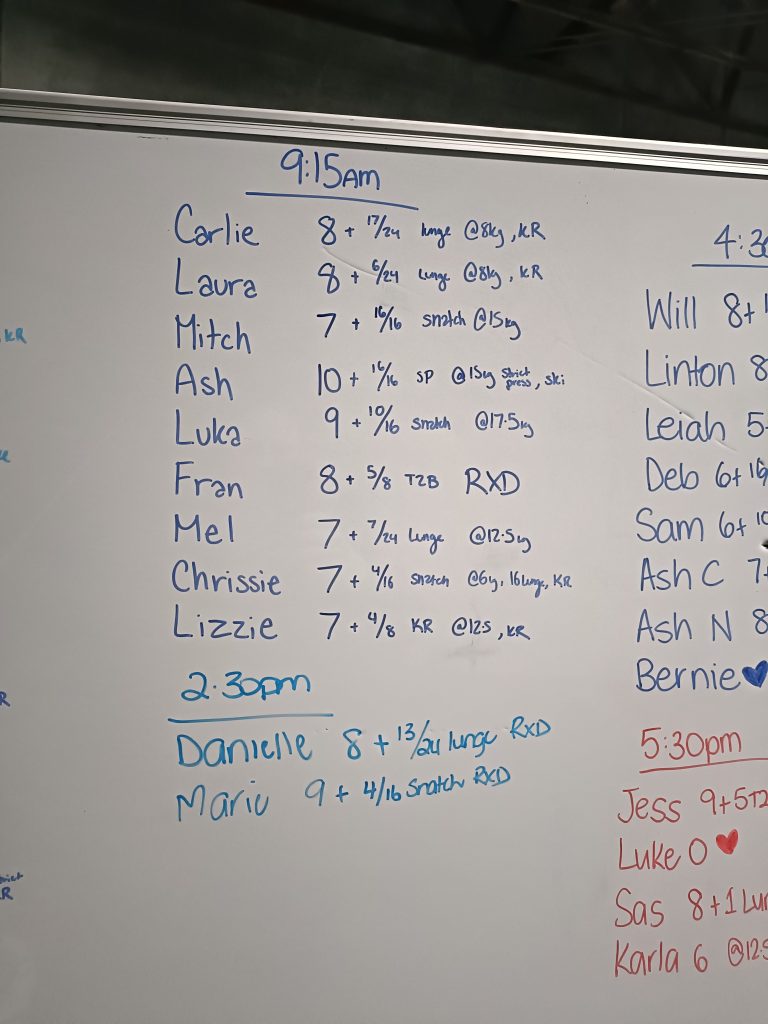 9:15AM
Carlie 8 + 17/24 lunge @8kg, KR
Laura 8 + 6/24 lunge @8kg, KR
Mitch 7 + 16/16 snatch @15kg
Ash 10 + 16/16 SP @15kg strict press, ski
Luka 9 + 10/16 snatch @17.5kg
Fran 8 + 5/8 T2B RXD
Mel 7 + 7/24 lunge @12.5kg
Chrissie 7 + 4/16 snatch @6kg, 16 lunge, KR
Lizzie 7 + 4/8 KR @12.5, KR
2:30pm
Danielle 8 + 13/24 lunge RXD
Mario 9 + 4/16 Snatch RXD
4:3
Will 8+1
Linton 8
Leiah 5+
Deb 6+
Sam 6+
Ash C 7+
Ash N 8
Bernie
5:30pm
Jess 9+5T2
Luke 0
Sas 8+1 Lun
Karla 6 @12.5
KR
R
R